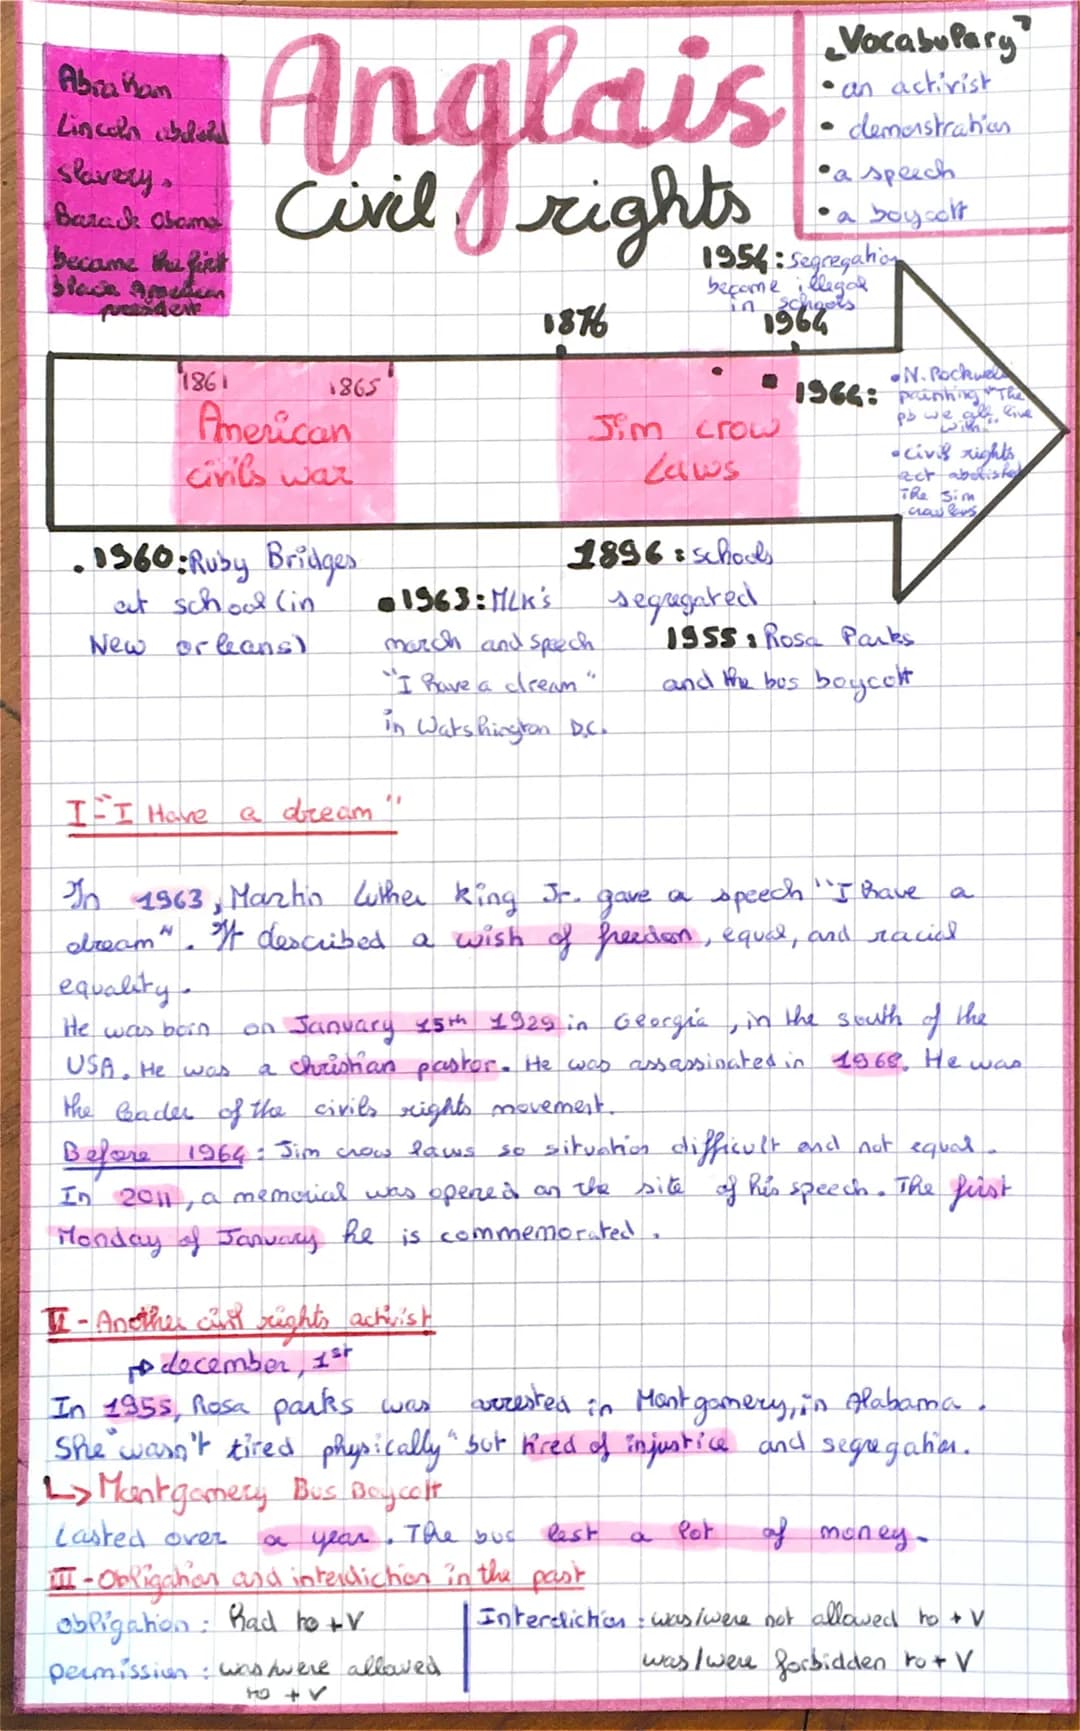 Abraham
Lincoln abolished
slavery.
Barack Obama
became the first
black American
president
Anglais
Civil rights
"Vocabulary"
• an activist
• demonstration
• a speech
• a boycott
1954: segregation
become illegal
in schools
1876
1964
1861
1865
American
civils war
Jim crow
Laws
1964:
• N. Rockwell
painting "The
pb we all live
with"
• civil rights
act abolished
The Jim
crow laws
. 1960: Ruby Bridges
at school (in
New orleans)
• 1963: MLK's
march and speech
"I have a dream"
in Watshington D.C.
1896: schools
segregated
1955: Rosa Parks
and the bus boycott
I - "I Have a dream"
In 1963, Martin Luther King Jr. gave a speech "I have a
dream". It described a wish of freedom, equal, and racial
equality.
He was born on January 15th 1929 in Georgia, in the south of the
USA. He was a christian pastor. He was assassinated in 1968. He was
the leader of the civils rights movement.
Before 1964: Jim crow laws so situation difficult and not equal.
In 2011, a memorial was opened on the site of his speech. The first
Monday of January he is commemorated.
II - Another civil rights activist
↳ december, 1st
In 1955, Rosa parks was arrested in Montgomery, in Alabama.
She "wasn't tired physically" but tired of injustice and segregation.
↳ Montgomery Bus Boycott
Lasted over a year. The bus lost a lot of money.
III - Obligation and interdiction in the past
obligation: had to + V
permission: was/were allowed
to + V
Interdiction: was/were not allowed to + V
was/were forbidden to + V